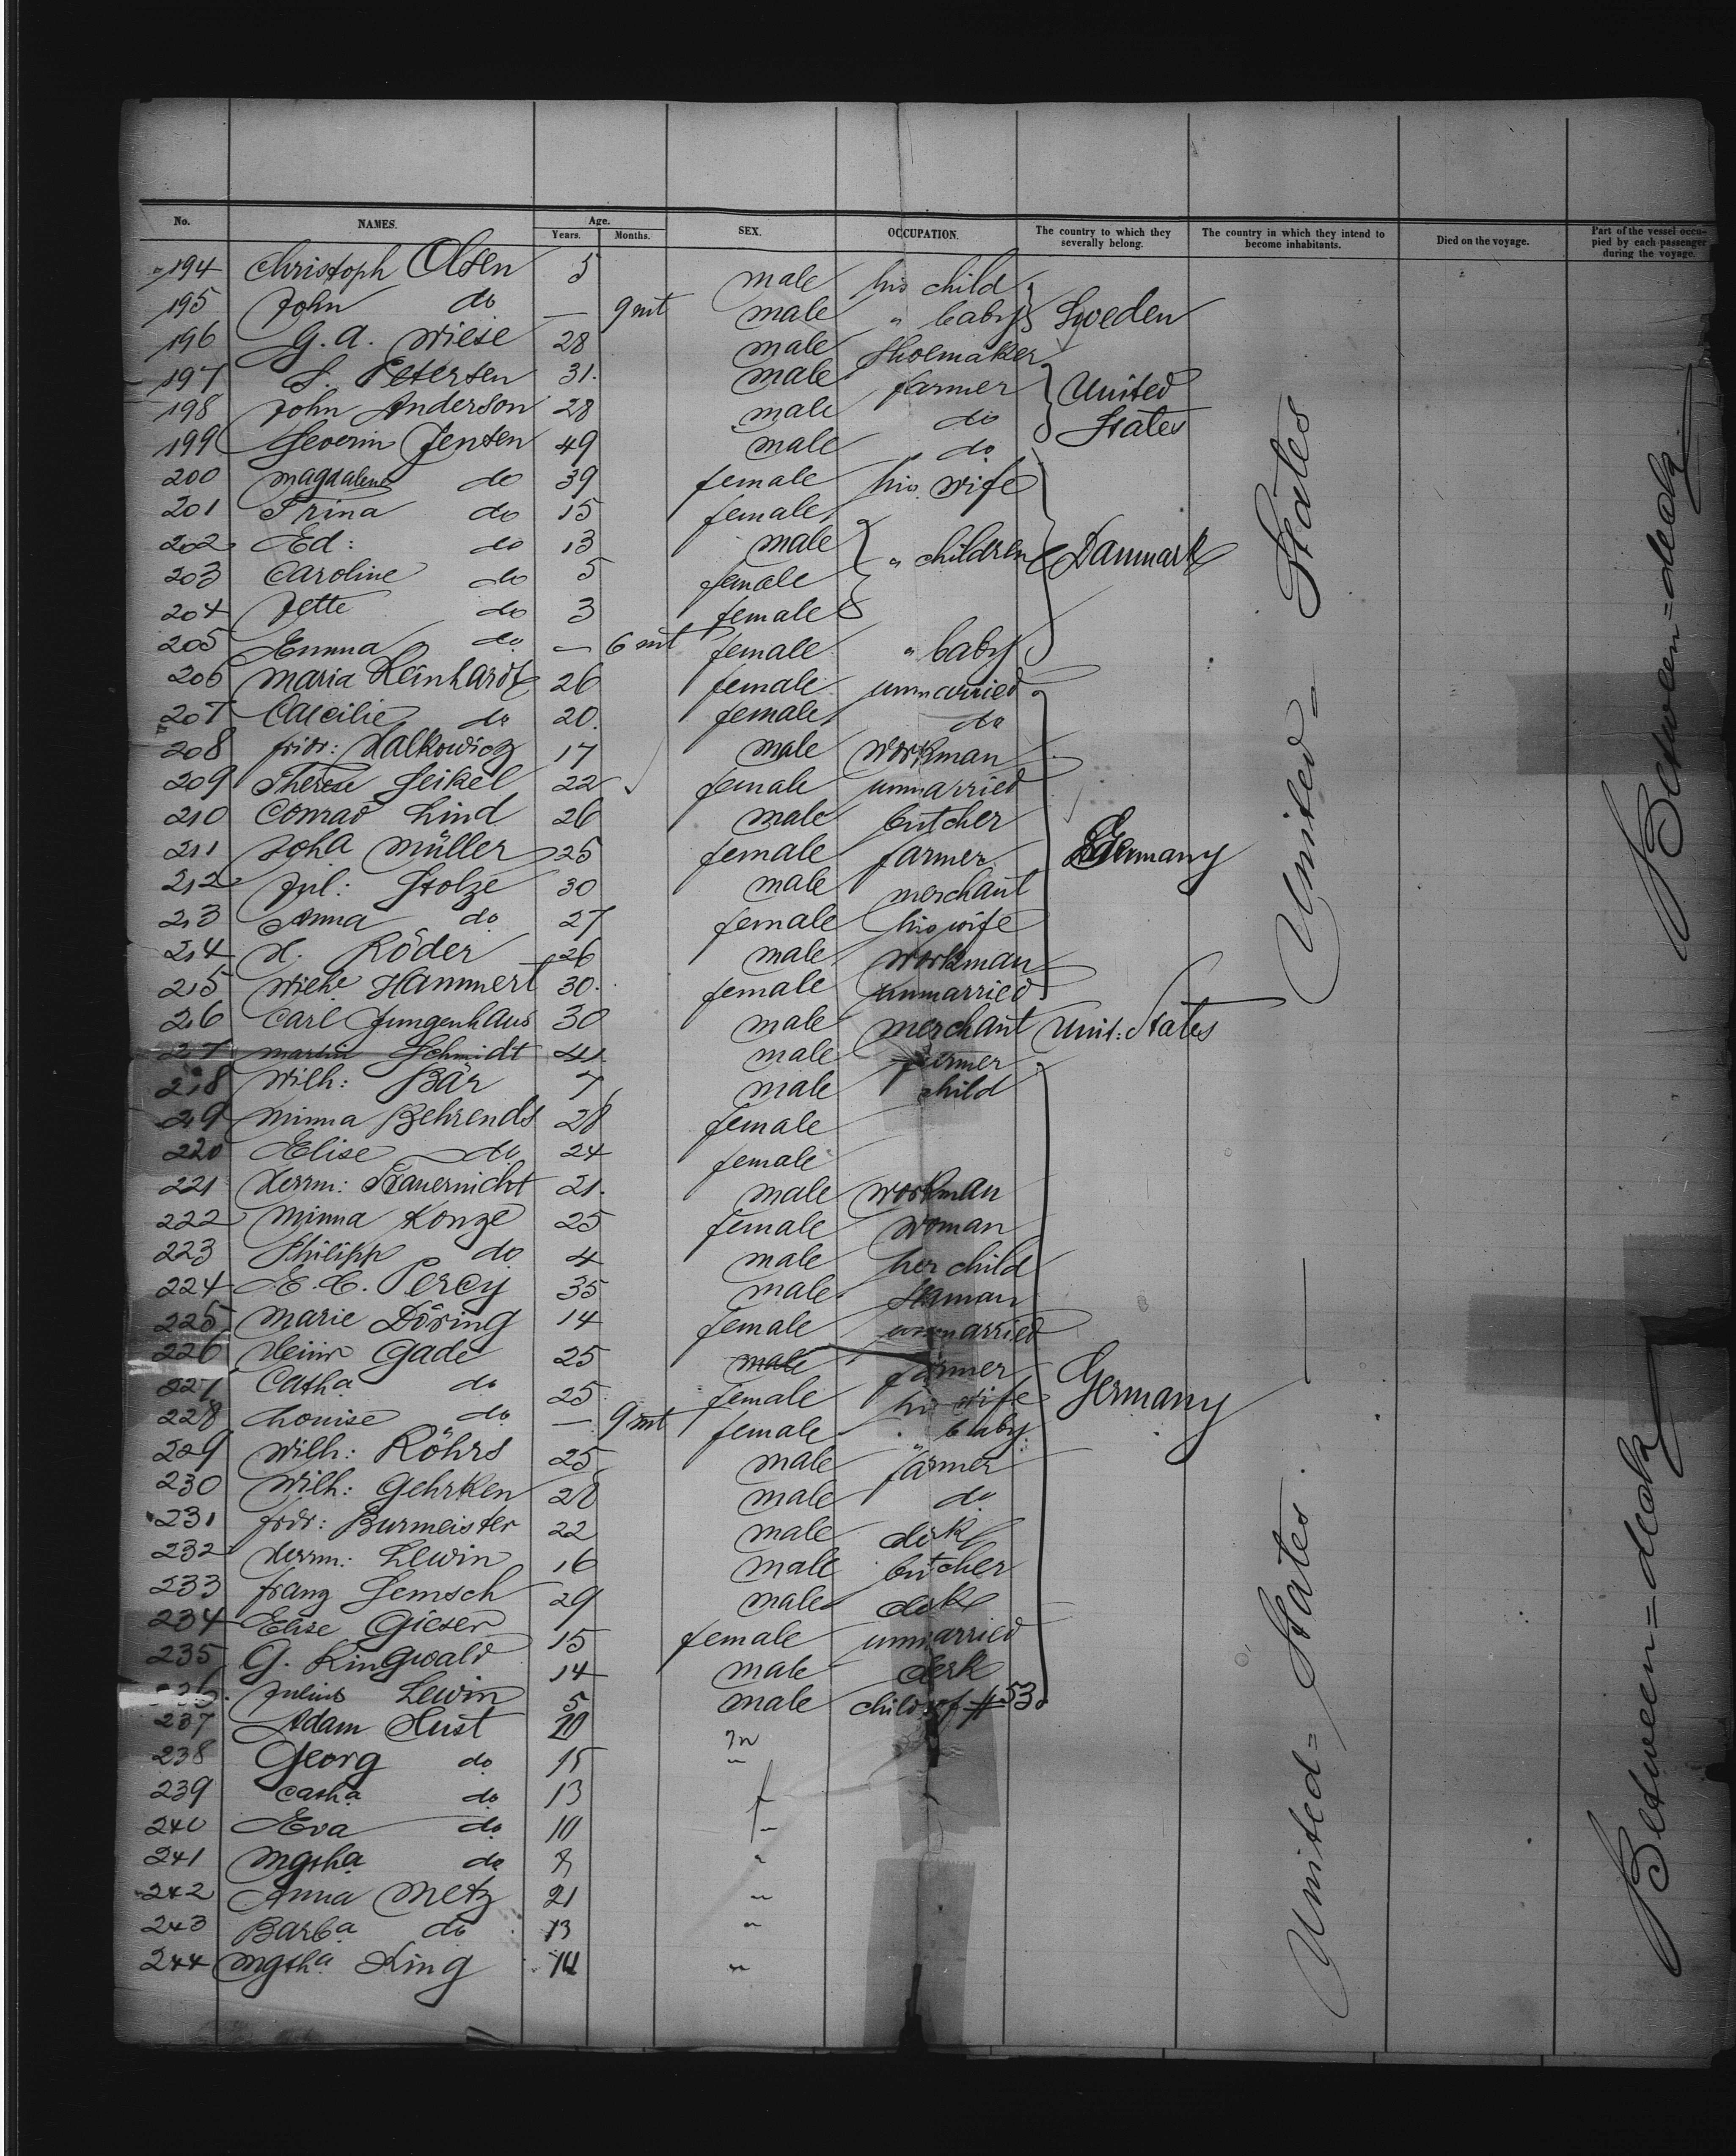 No. NAMES. Age. Years. Months. SEX. OCCUPATION. The country to which they severally belong. The country in which they intend to become inhabitants. Died on the voyage. Part of the vessel occupied by each passenger during the voyage.
194 Christoph Olsen 5 male his child
195 John do — 9 mt male " baby Sweden
196 G. A. Wiese 28 male Shoemaker
197 S. Petersen 31. male farmer United
198 John Anderson 28 male do States
199 Severin Jensen 49 male do
200 Magdalene do 39 female his wife
201 Trina do 15 female
202 Ed: do 13 male " children Danmark
203 Caroline do 5 female
204 Jette do 3 female
205 Emma do — 6 mt female " baby
206 Maria Reinhardt 26 female unmarried
207 Caecilie do 20. female do
208 fridr: Kalkowicz 17 male workman
209 Therese Seikel 22 female unmarried
210 Conrad Lind 26 male butcher
211 Soha Müller 25 female farmer Germany
212 Jul: Stolze 30 male merchant
213 Anna do 27 female his wife
214 H. Röder 26 male workman
215 Wilhe Hammert 30. female unmarried
216 Carl Jungenhaus 30 male merchant Unit: States
217 Martin Schmidt 41. male farmer
218 Wilh: Bär 7 male child
219 Minna Behrends 28 female
220 Elise do 24 female
221 Herrm: Frauernicht 21. male workman
222 Minna Konze 25 female woman
223 Philipp do 4 male her child
224 E. C. Percy 35 male seaman
225 Marie Döring 14 female unmarried
226 Heinr Gade 25 male farmer
227 Catha do 25 female his wife Germany
228 Louise do — 9 mt female " baby
229 Wilh: Röhrs 25 male farmer
230 Wilh: Gehrken 28 male do
231 frdr: Burmeister 22 male clerk
232 Herrm: Lewin 16 male butcher
233 franz Semsch 29 male clerk
234 Elise Gieser 15 female unmarried
235 G. Ringwald 14 male clerk
236. Julius Lewin 5 male child of # 53
237 Adam Hust m
238 Georg do 15 "
239 Catha do 13 f
240 Eva do 10 "
241 Mgtha do 8 "
242 Anna Metz 21 "
243 Barba do 13 "
244 Mgtha King 14 "
United = States
United = States
Between = deck
Between = deck